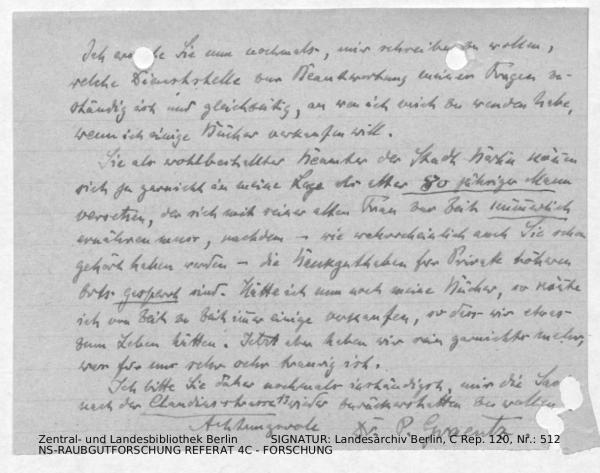 Ich ersuche Sie nun nochmals, mir schreiben zu wollen,
welche Dienststelle zur Beantwortung meiner Fragen zu-
ständig ist und gleichzeitig, an wen ich mich zu wenden habe,
wenn ich einige Bücher verkaufen will.
Sie als wohlbestallter Beamter der Stadt Berlin können
sich ja garnicht in meine Lage als alter 80 jähriger Mann
versetzen, der sich mit seiner alten Frau zur Zeit kümmerlich
ernähren muss, nachdem – wie wahrscheinlich auch Sie schon
gehört haben werden – die Bankguthaben für Private höheren
Orts gesperrt sind. Hätte ich nun noch meine Bücher, so könnte
ich von Zeit zu Zeit immer einige verkaufen, so dass wir etwas
zum Leben hätten. Jetzt aber haben wir rein garnichts mehr,
was für uns sehr sehr traurig ist.
Ich bitte Sie daher nochmals inständigst, mir die
nach der Claudiusstrasse 15 wieder zurückerstatten zu wollen.
Achtungsvoll Dr. P.
Zentral- und Landesbibliothek Berlin SIGNATUR: Landesarchiv Berlin, C Rep. 120, Nr.: 512
NS-RAUBGUTFORSCHUNG REFERAT 4C - FORSCHUNG